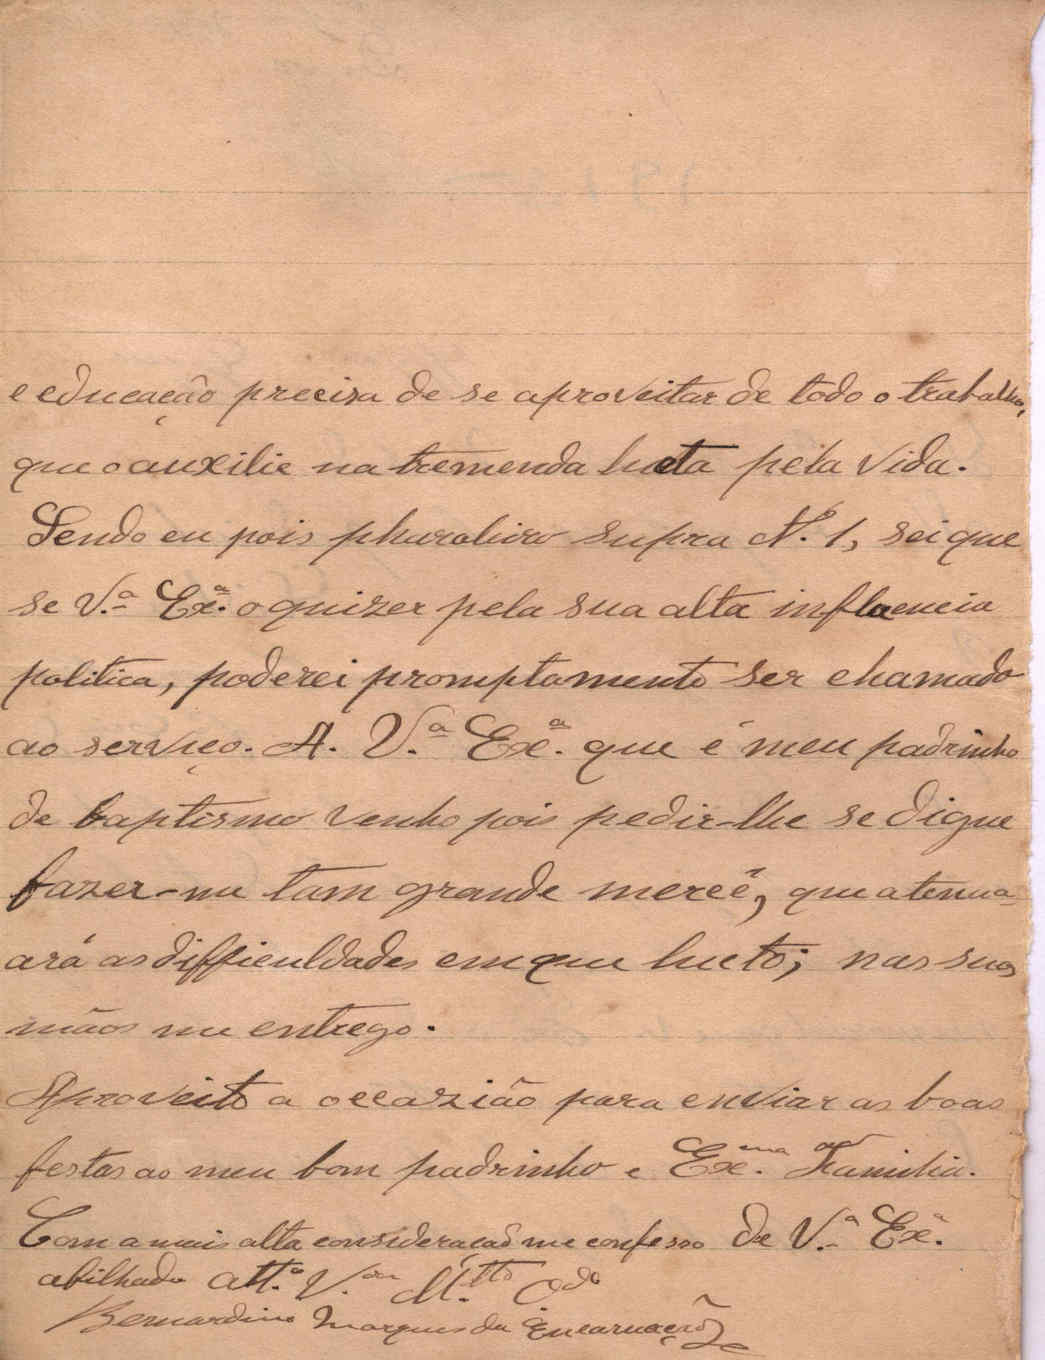 e educação precisa de se aproveitar de todo o trabalho,
que o auxilie na tremenda lucta pela vida.
Sendo eu pois pharoleiro supra Nº 1, sei que
se V.ª Exª. o quizer pela sua alta influencia
politica, poderei promptamente ser chamado
ao serviço. A. V.ª Exª. que é meu padrinho
de baptismo venho pois pedir-lhe se digne
fazer-me tam grande mercê, que atenua-
ará as difficuldades em que lucto; nas suas
mãos me entrego.
Aproveito a occazião para enviar as boas
festas ao meu bom padrinho e Exma. Familia.
Com a mais alta consideração me confesso de V.ª Exª.
afilhado att.º V.or M.tto O.do
Bernardino Marques da Encarnação